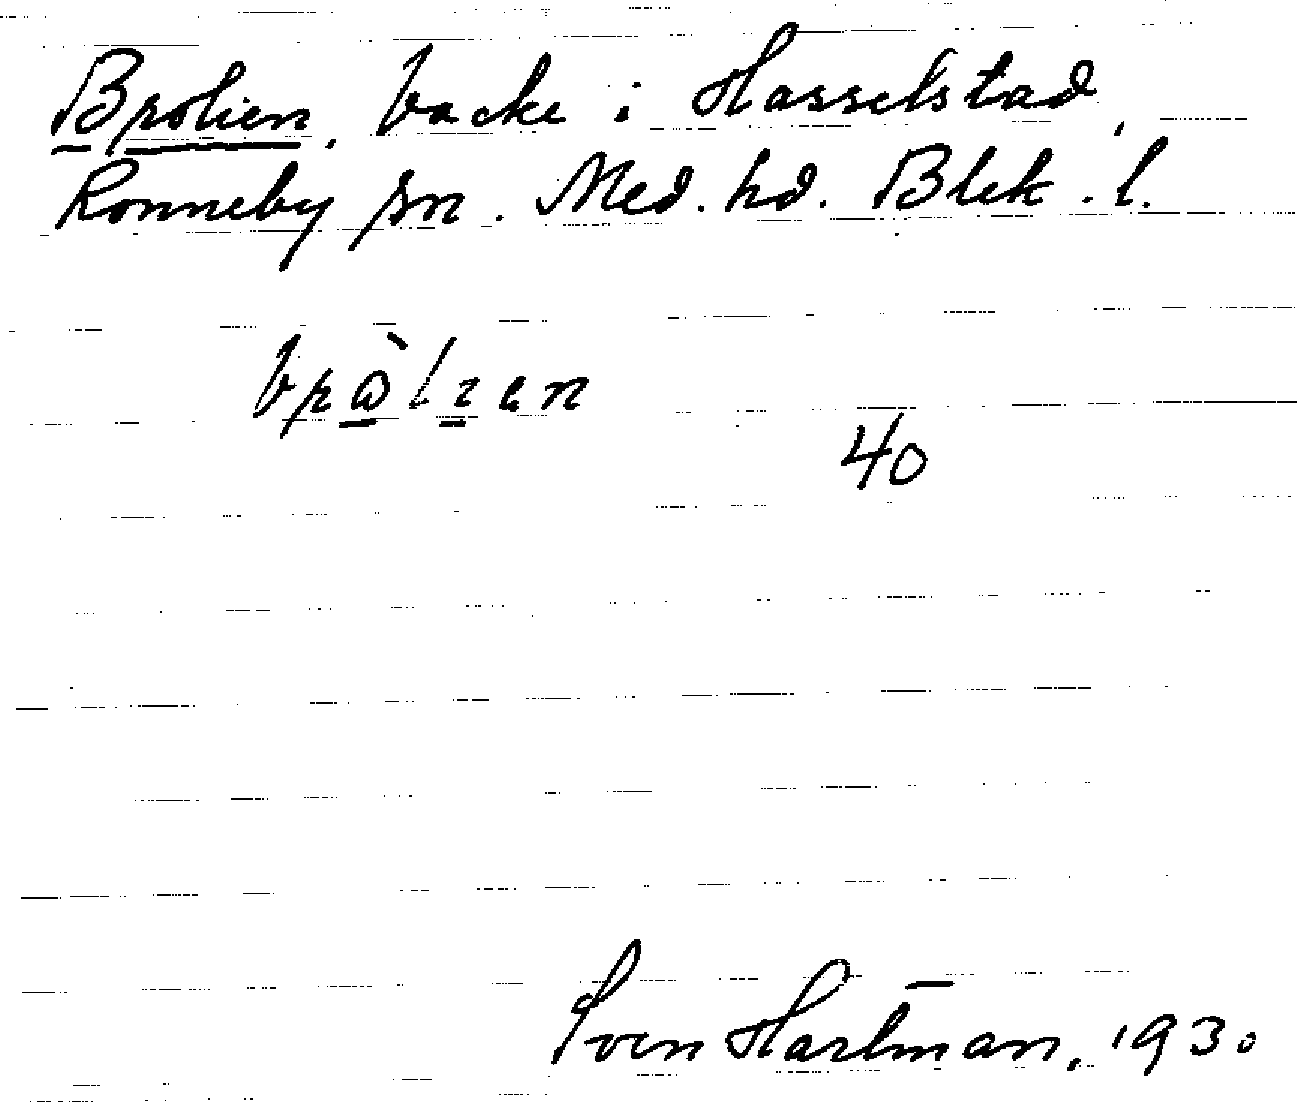 Brolien, backe i Hasselstad,
Ronneby sn. Med. hd. Blek. l.
40
Sven Hartman, 1930